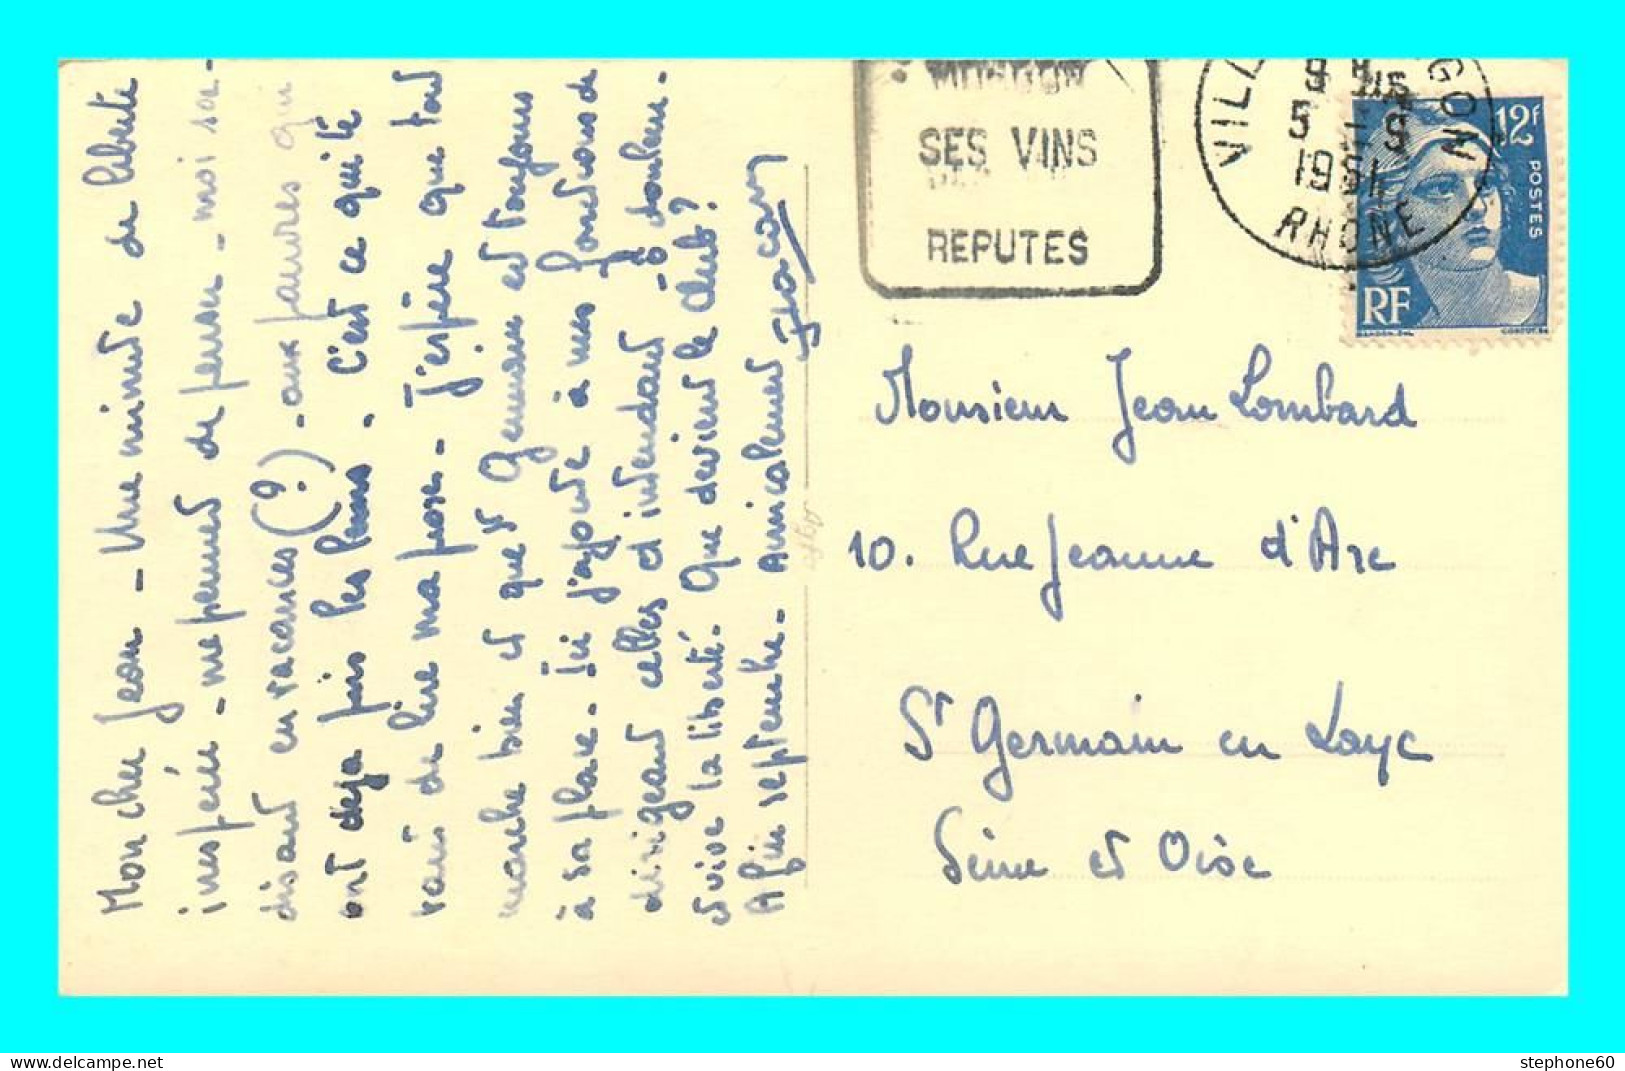 Mon cher Jean - Une minute de liberté
inespérée - me permet de penser - moi sa-
disant en vacances (?) - aux pauvres qui
ont déjà fini les leurs. C'est ce qui te
de lire ma prose - J'espère que tout
marche bien et que St Germain est toujours
à sa place - Ici j'ajoute à mes fonctions de
dirigeant celles d'intendant - ô douleur -
et vive la liberté. Que devient le club ?
A fin septembre - Amicalement
SES VINS
REPUTES
VILL GON
5 - 9
1951
RHONE
12F
POSTES
RF
Monsieur Jean Lombard
10. Rue Jeanne d'Arc
St Germain en Laye
Seine et Oise
stephone60